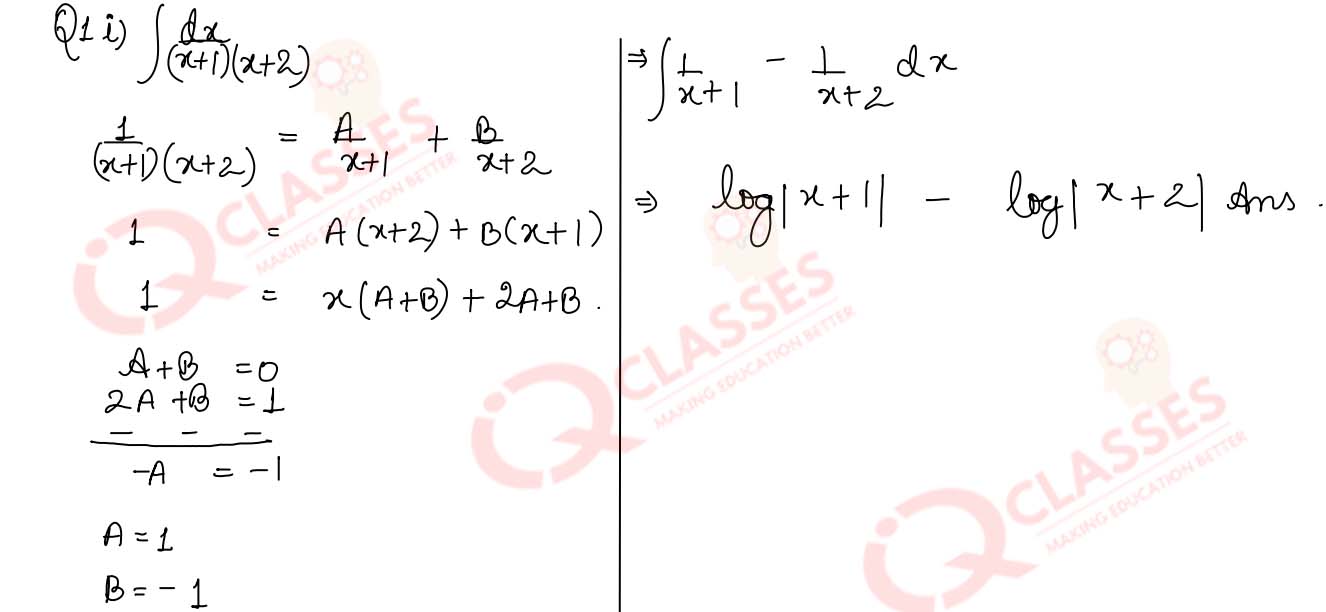 Q1 i) ∫ dx/(x+1)(x+2)
1/(x+1)(x+2) = A/x+1 + B/x+2
1 = A(x+2) + B(x+1)
1 = x(A+B) + 2A+B .
A+B = 0
2A +B = 1
– – –
-A = -1
A = 1
B = - 1
⇒ ∫ 1/x+1 - 1/x+2 dx
⇒ log|x+1| - log|x+2| Ans .
iQ CLASSES
MAKING EDUCATION BETTER
iQ CLASSES
MAKING EDUCATION BETTER
iQ CLASSES
MAKING EDUCATION BETTER